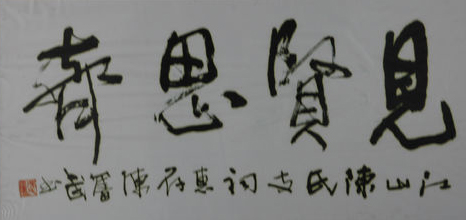 見賢思齊
江山陳氏支祠惠存陳奮武书